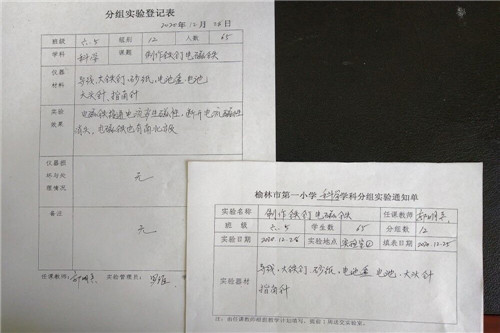 分组实验登记表
2020年12月28日
班级 六.5 组别 12 人数 65
学科 科学 课题 制作铁钉电磁铁
仪器材料
导线、大铁钉、砂纸、电池盒、电池
大头针、指南针
实验效果
电磁铁接通电流产生磁性,断开电流磁性
消失、电磁铁也有南北极
仪器损坏与处理情况 无
备注 无
任课教师: 实验管理员:
榆林市第一小学 科学 学科分组实验通知单
实验名称 制作铁钉电磁铁 任课教师
班级 六.5 学生数 65 分组数 12
实验日期 2020.12.28 实验地点 实验室 填表日期 2020.12.25
实验器材
导线、大铁钉、砂纸、电池盒、电池、大头针
指南针
注:由任课教师根据教学计划填写,提前1周送交实验室。